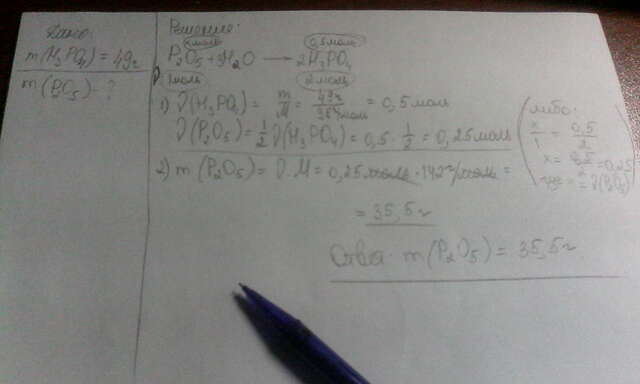 Дано:
m(H₃PO₄) = 49г
m(P₂O₅) - ?
Решение:
x моль 0,5 моль
P₂O₅ + 3H₂O → 2H₃PO₄
1 моль 2 моль
1) ν(H₃PO₄) = m/M = 49г/98г/моль = 0,5 моль
ν(P₂O₅) = 1/2 ν(H₃PO₄) = 0,5 · 1/2 = 0,25 моль
либо:
x/1 = 0,5/2
x = 0,5/2 = 0,25
= ν(P₂O₅)
2) m(P₂O₅) = ν·M = 0,25 моль · 142 г/моль =
= 35,5г
Ответ: m(P₂O₅) = 35,5г